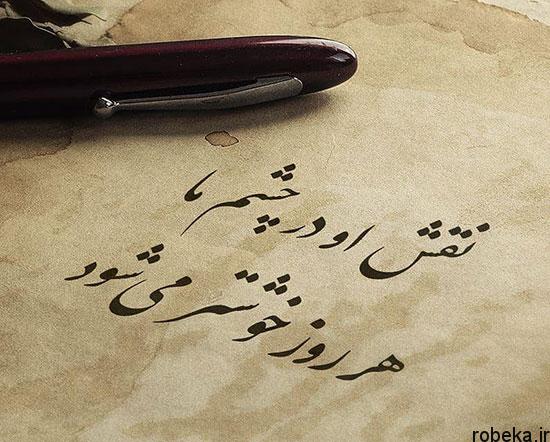 نقش او در چشم ما
هر روز خوشتر می شود
robeka.ir